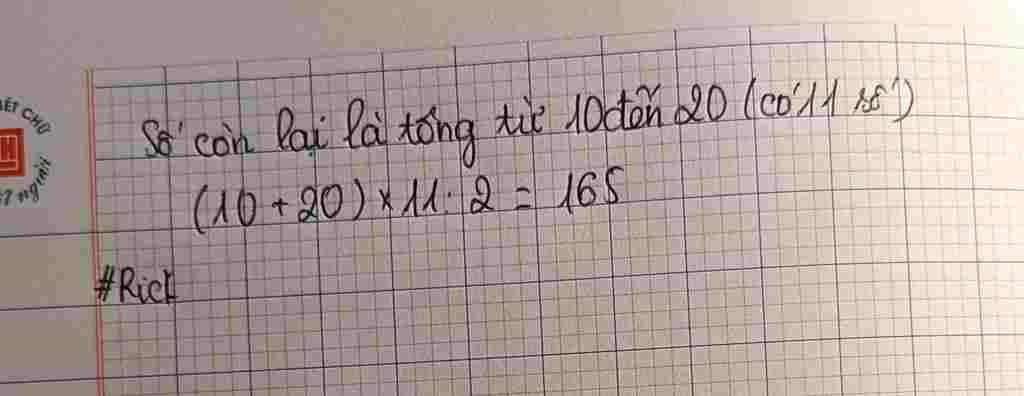 ẾT CHỮ
Số còn lại là tổng từ 10 đến 20 (có 11 số)
(10 + 20) × 11 : 2 = 165
#Rick